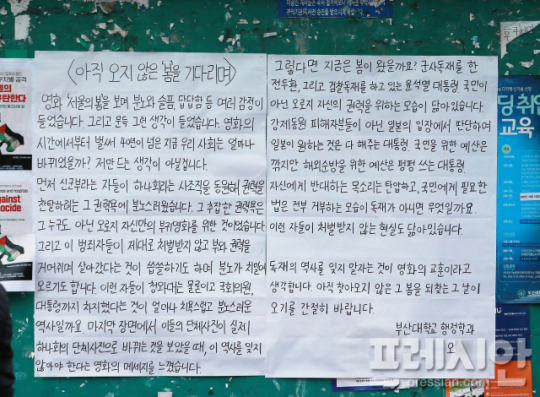 〈아직 오지 않은 '봄'을 기다리며〉
영화 '서울의 봄'을 보며 분노와 슬픔, 답답함 등 여러 감정이
들었습니다. 그리고 문득 그런 생각이 들었습니다. 영화의
시간에서부터 벌써 4번이 넘은 지금 우리 사회는 얼마나
바뀌었을까? 저만 드는 생각이 아닐겁니다.
먼저 신군부라는 자들이 하나회라는 사조직을 동원해 권력을
찬탈하려는 그 권력욕에 분노하였습니다. 그 추잡한 권력욕은
그 누구도 아닌 오로지 자신만의 부귀영화를 위한 것이었습니다.
그리고 이 범죄자들이 제대로 처벌받지 않고 부와 권력을
거머쥐며 살아갔다는 것이 씁쓸하기도 하며 분노가 치밀어
오르기도 합니다. 이런 자들이 청와대는 물론이고 국회의원,
대통령까지 차지했다는 것이 얼마나 치욕스럽고 분노스러운
역사일까요. 마지막 장면에서 이들의 단체사진이 실제
하나회의 단체사진으로 바뀌는 것을 보았을 때, 이 역사를 잊지
않아야 한다는 영화의 메세지를 느꼈습니다.
그렇다면 지금은 봄이 왔을까요? 군사독재를 한
전두환, 그리고 검찰독재를 하고 있는 윤석열 대통령, 국민이
아닌 오로지 자신의 권력을 위하는 모습이 닮아있습니다.
강제동원 피해자분들이 아닌 일본의 입장에서 판단하여
일본이 원하는 것은 다 해주는 대통령. 국민을 위한 예산은
깎지만 해외순방을 위한 예산은 펑펑 쓰는 대통령
자신에게 반대하는 목소리는 탄압하고, 국민에게 필요한
법은 전부 거부하는 모습이 독재가 아니면 무엇일까요.
이런 자들이 처벌받지 않는 현실도 닮아있습니다.
독재의 역사를 잊지 말자는 것이 영화의 교훈이라고
생각합니다. 아직 찾아오지 않은 그 봄을 되찾는 그 날이
오기를 간절히 바랍니다.
부산대학교 행정학과
오
프레시안
pressian.com
딩 취업
교육
against